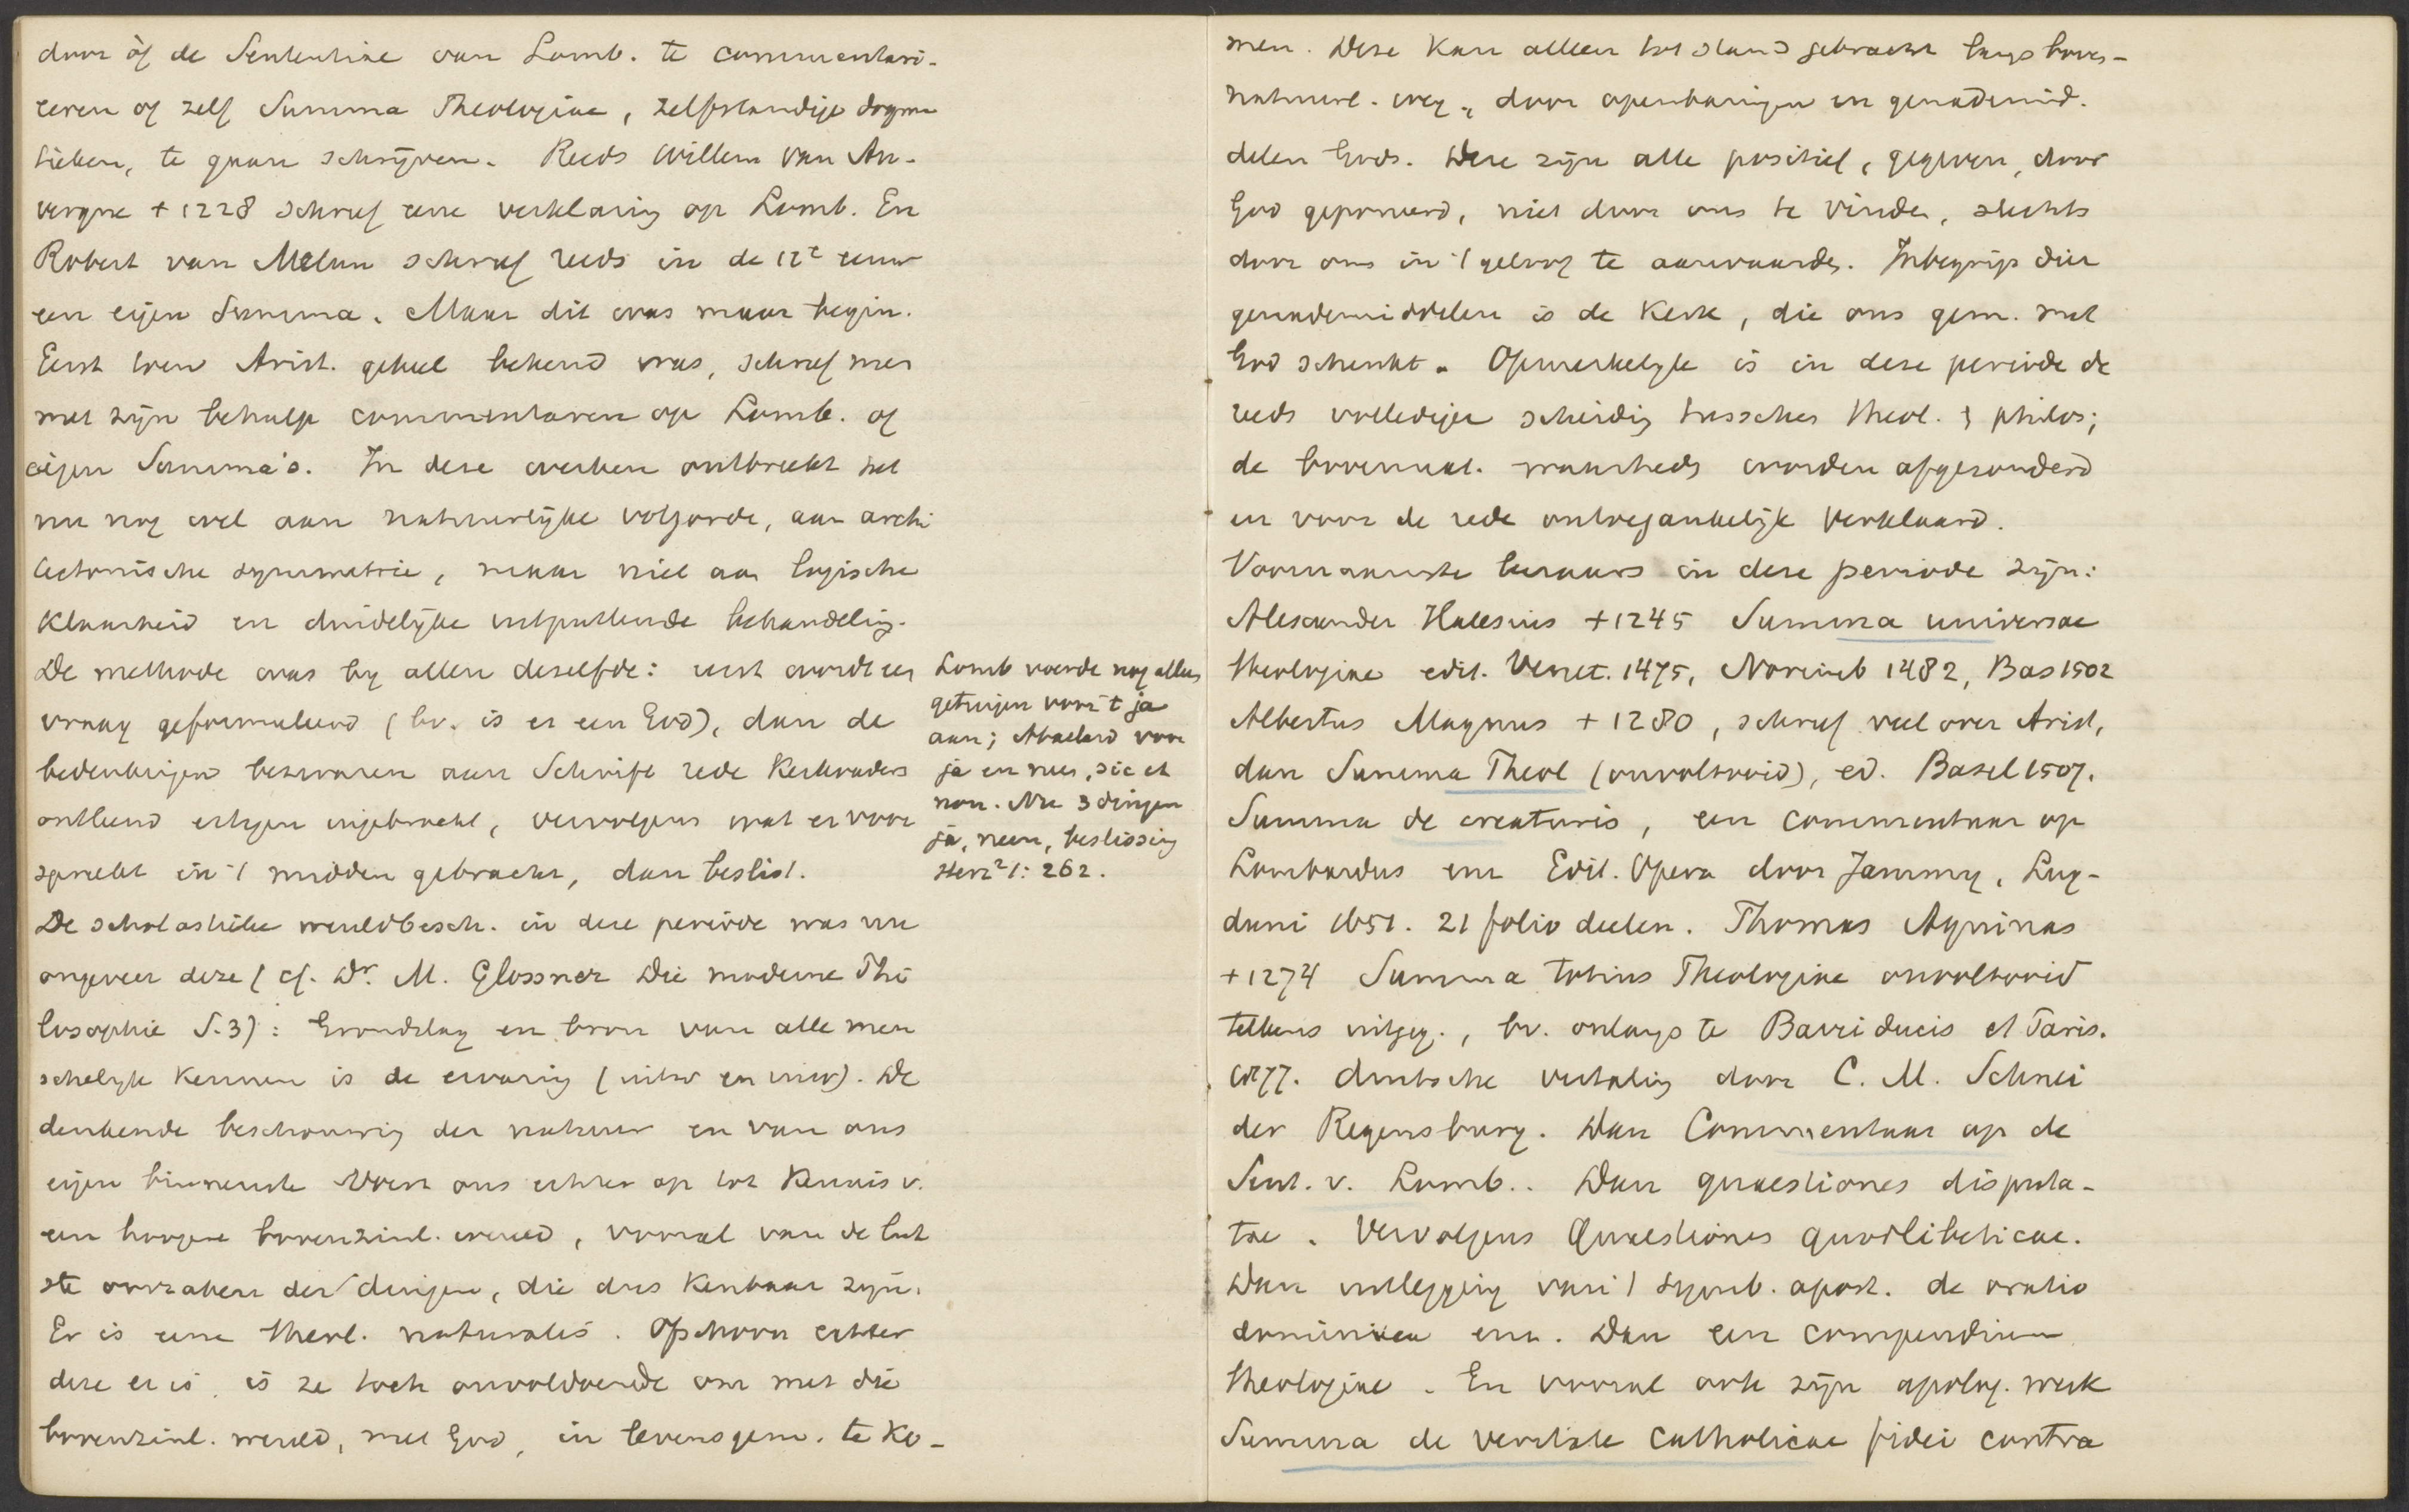 door òf de Sententiae van Lomb. te commentari-
eeren of zelf Summa Theologiae, zelfstandige dogma
tieken, te gaan schrijven. Reeds Willem van Au-
vergne + 1228 schreef eene verklaring op Lomb. En
Robert van Melun schreef reeds in de 12e eeuw
een eigen Summa. Maar dit was maar begin.
Eerst toen Arist. geheel bekend was, schreef men
met zijn behulp commentaren op Lomb. of
eigen Summa's. In deze werken ontbreekt het
nu nog wel aan natuurlijke volgorde, aan archi
tectonische symmetrie, maar niet aan logische
klaarheid en duidelijke uitputtende behandeling.
De methode was by allen deselfde: eerst wordt een
vraag geformuleerd (bv. is er een God), dan de
bedenkingen bezwaren aan Schrift rede Kerkvaders
ontleend ertegen ingebracht, vervolgens wat er voor
spreekt in 't midden gebracht, dan beslist.
De scholastieke wereldbesch. in deze periode was nu
ongeveer deze (cf. Dr. M. Glossner Die moderne Phi
losophie S.3): Grondslag en bron van alle men
schelyk kennen is de ervaring (uitw en inw). De
denkende beschouwing der natuur en van ons
eigen binnenste voert ons echter op tot kennis v.
een hoogere bovenzinl. wereld, vooral van de laat
ste oorzaken der dingen, die dus kenbaar zijn.
Er is eene theol. naturalis. Ofschoon echter
deze er is, is ze toch onvoldoende om met die
bovenzinl. wereld, met God, in levensgem. te ko-
Lomb voerde nog alleen
getuigen voor 't ja
aan; Abaelard voor
ja en neen, sic et
non. Nu 3 dingen
ja, neen, beslissing
Herz² 1: 262.
men. Deze kan alleen tot stand gebracht langs boven-
natuurl. weg, door openbaringen en genademid.
delen Gods. Deze zijn alle positief, gegeven, door
God geponeerd, niet door ons te vinden, slechts
door ons in 't geloof te aanvaarden. Inbegrip dier
genademiddelen is de Kerk, die ons gem. met
God schenkt. Opmerkelyk is in deze periode de
reeds volledige scheiding tusschen theol. & philos;
de bovennat. waarheden worden afgezonderd
en voor de rede ontoegankelijk verklaard.
Voornaamste leeraars in deze periode zijn:
Alexander Halesius + 1245 Summa universae
theologiae edit. Venet. 1475, Norimb 1482, Bas 1502
Albertus Magnus + 1280, schreef veel over Arist,
dan Summa Theol (onvoltooid), ed. Basel 1507.
Summa de creaturis, een commentaar op
Lombardus enz Edit. Opera door Jammy, Lug-
duni 1651. 21 folio deelen. Thomas Aquinas
+ 1274 Summa totius Theologiae onvoltooid
telkens uitgeg., bv. onlangs te Barri ducis et Paris.
1877. duitsche vertaling door C. M. Schnei
der Regensburg. Dan Commentaar op de
Sent. v. Lomb.. Dan quaestiones disputa-
tae. Vervolgens Quaestiones quodlibeticae.
Dan uitlegging van 't symb. apost. de oratio
dominica enz. Dan een compendium
theologiae. En vooral ook zijn apolog. werk
Summa de veritate catholicae fidei contra